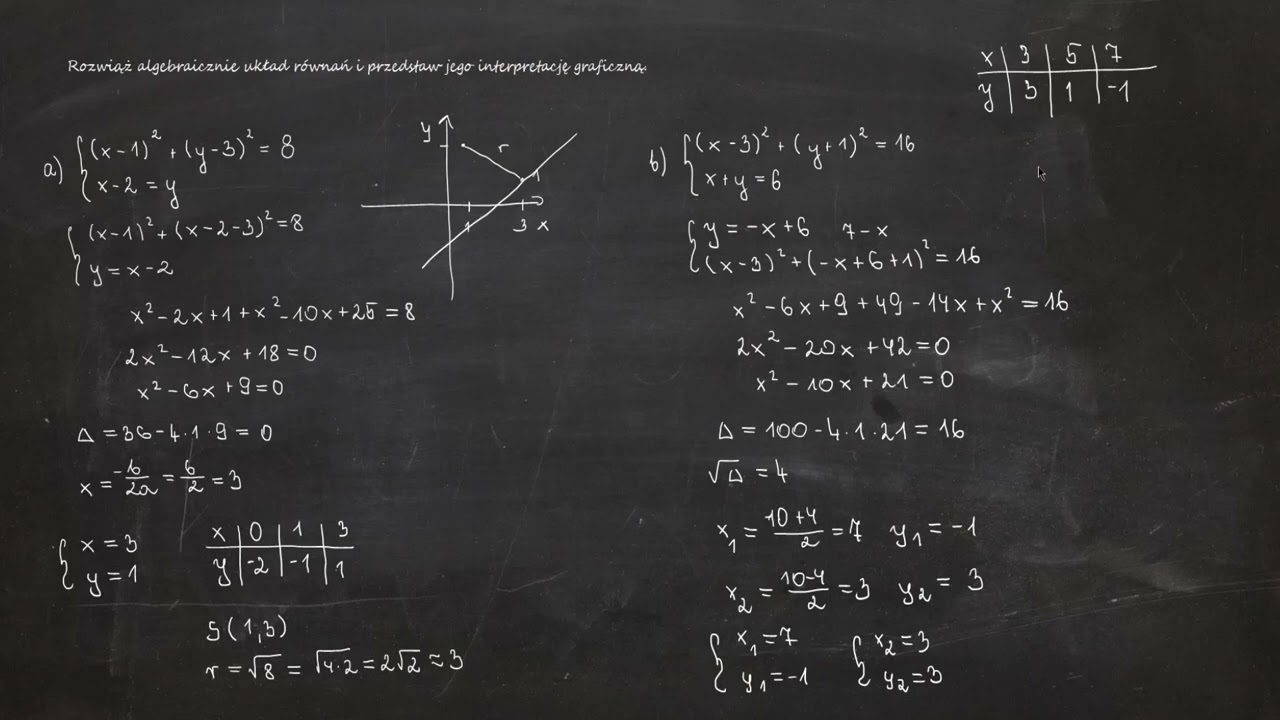 Rozwiąż algebraicznie układ równań i przedstaw jego interpretację graficzną.
x | 3 | 5 | 7
y | 3 | 1 | -1
a) { (x-1)² + (y-3)² = 8
x-2 = y
{ (x-1)² + (x-2-3)² = 8
y = x-2
x² - 2x + 1 + x² - 10x + 25 = 8
2x² - 12x + 18 = 0
x² - 6x + 9 = 0
Δ = 36 - 4·1·9 = 0
x = -b/2a = 6/2 = 3
{ x = 3
y = 1
x | 0 | 1 | 3
y | -2 | -1 | 1
S(1,3)
r = √8 = √4·2 = 2√2 ≈ 3
y
r
1
1
3 x
b) { (x-3)² + (y+1)² = 16
x+y = 6
{ y = -x+6 7-x
(x-3)² + (-x+6+1)² = 16
x² - 6x + 9 + 49 - 14x + x² = 16
2x² - 20x + 42 = 0
x² - 10x + 21 = 0
Δ = 100 - 4·1·21 = 16
√Δ = 4
x₁ = 10+4/2 = 7 y₁ = -1
x₂ = 10-4/2 = 3 y₂ = 3
{ x₁ = 7 { x₂ = 3
y₁ = -1 y₂ = 3